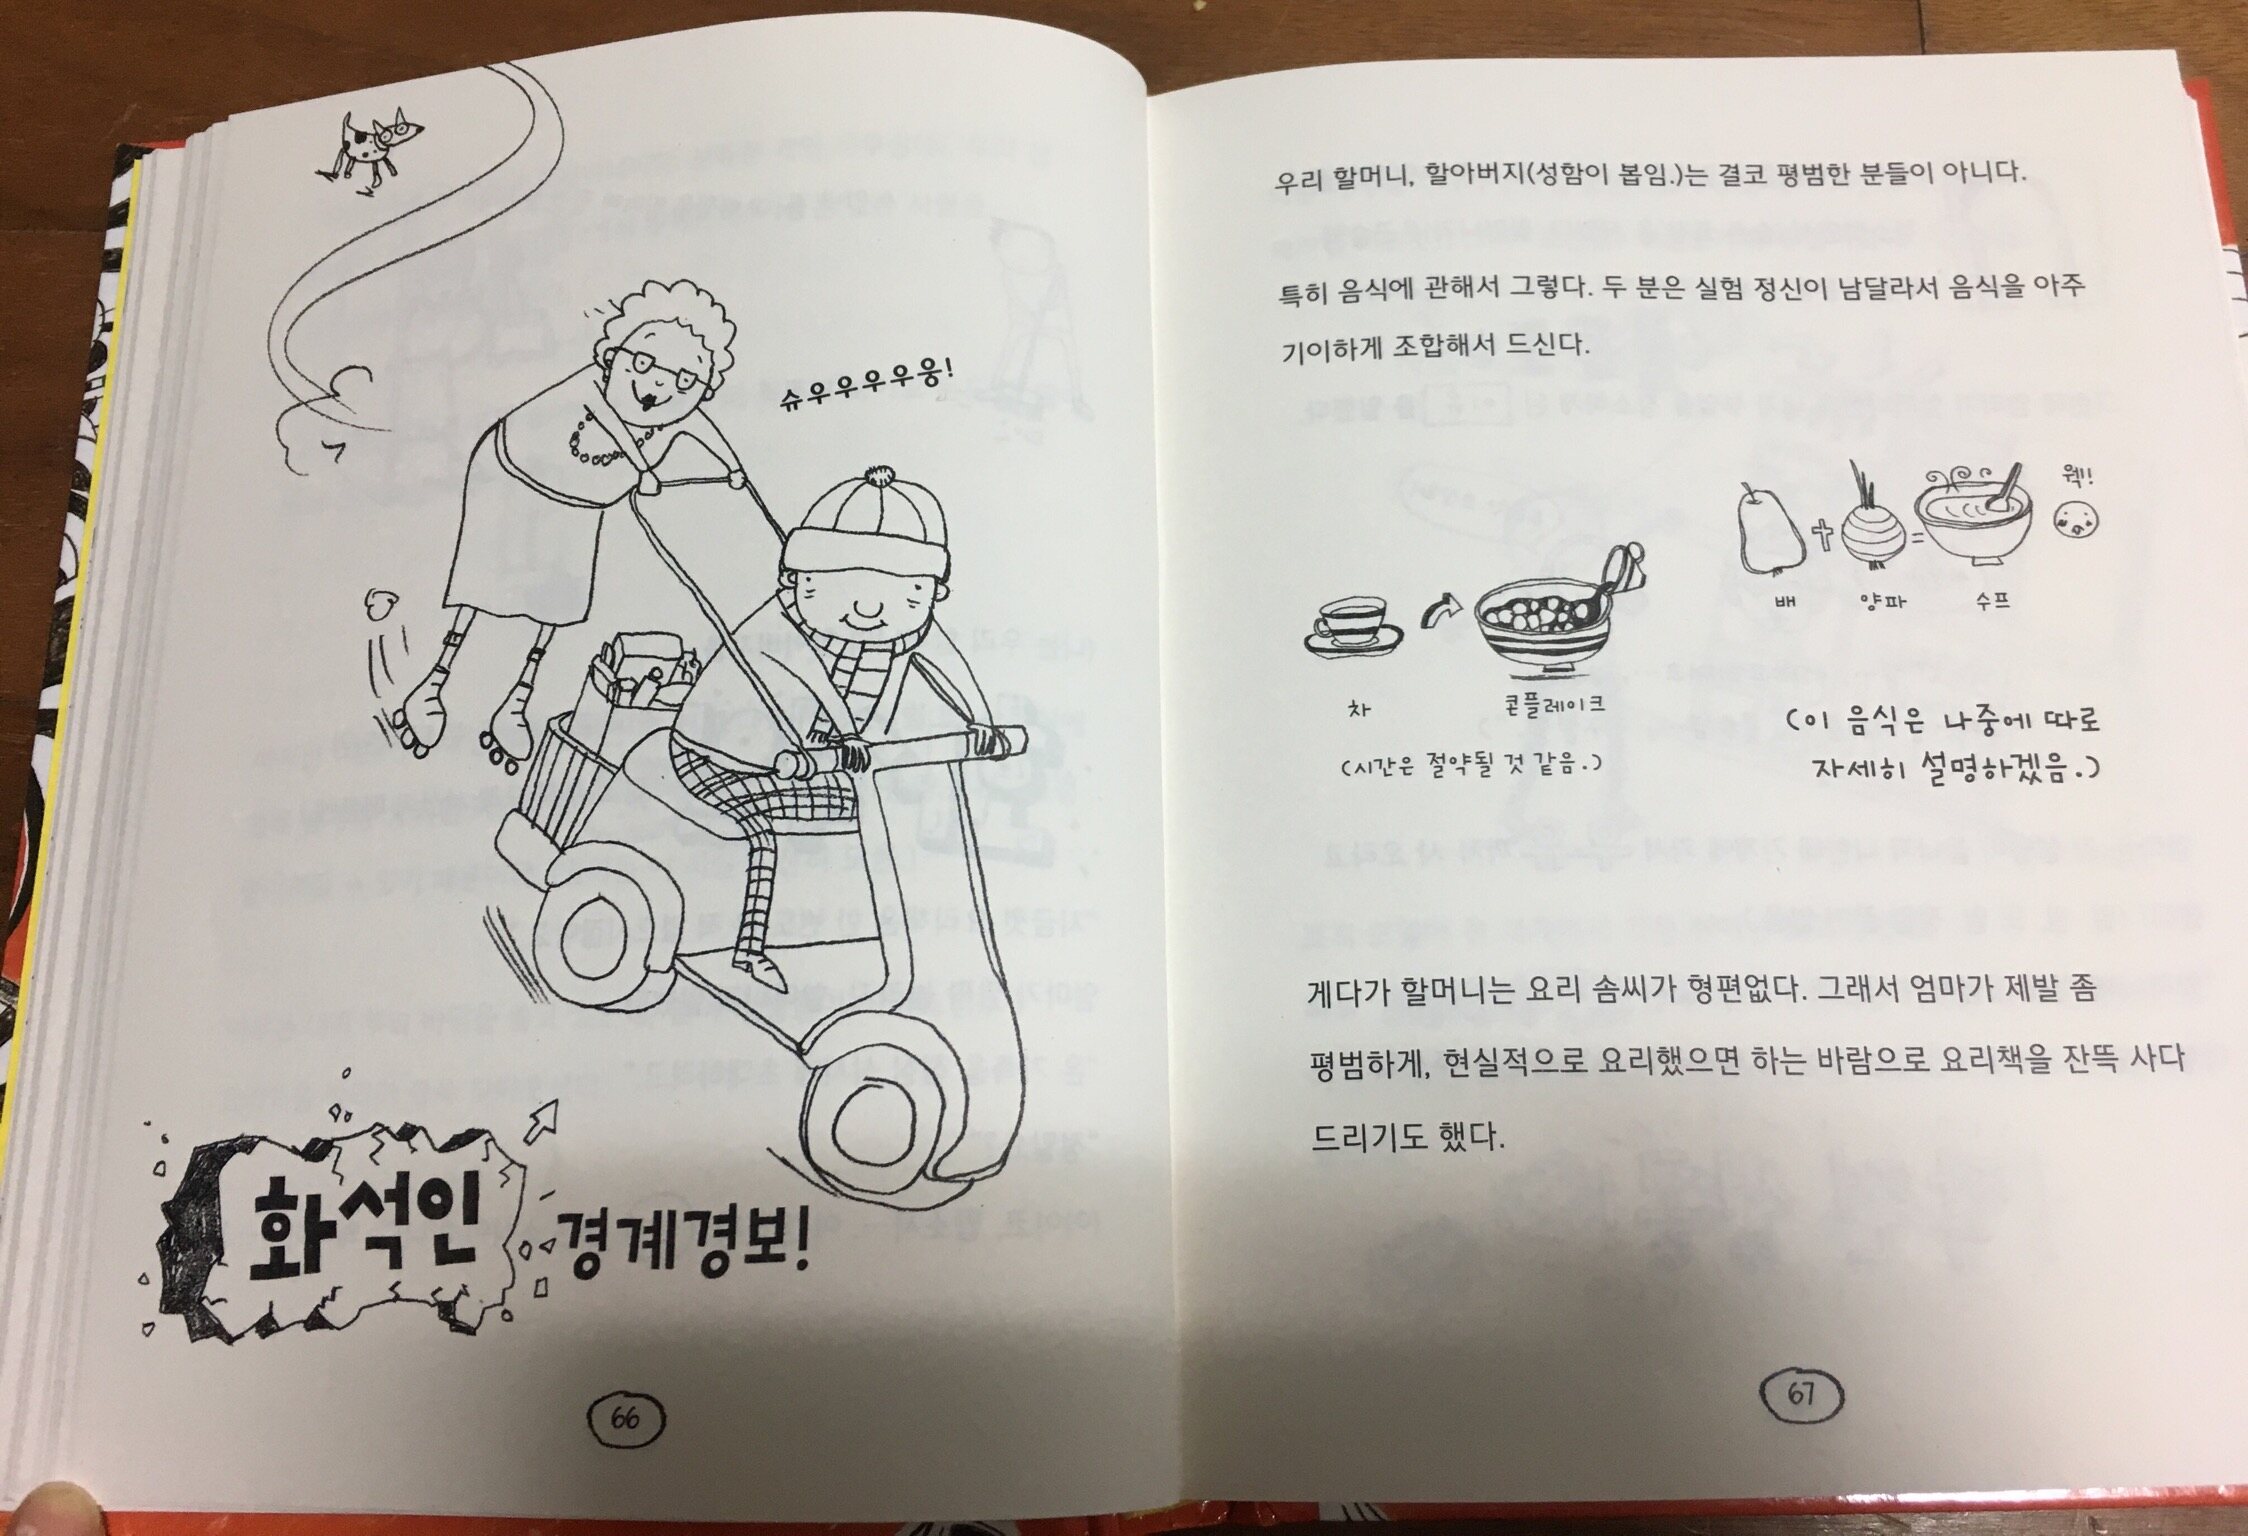 슈우우우우웅!
화석인
경계경보!
66
우리 할머니, 할아버지(성함이 봅임.)는 결코 평범한 분들이 아니다.
특히 음식에 관해서 그렇다. 두 분은 실험 정신이 남달라서 음식을 아주
기이하게 조합해서 드신다.
차
콘플레이크
(시간은 절약될 것 같음.)
웩!
배 + 양파 = 수프
(이 음식은 나중에 따로
자세히 설명하겠음.)
게다가 할머니는 요리 솜씨가 형편없다. 그래서 엄마가 제발 좀
평범하게, 현실적으로 요리했으면 하는 바람으로 요리책을 잔뜩 사다
드리기도 했다.
67